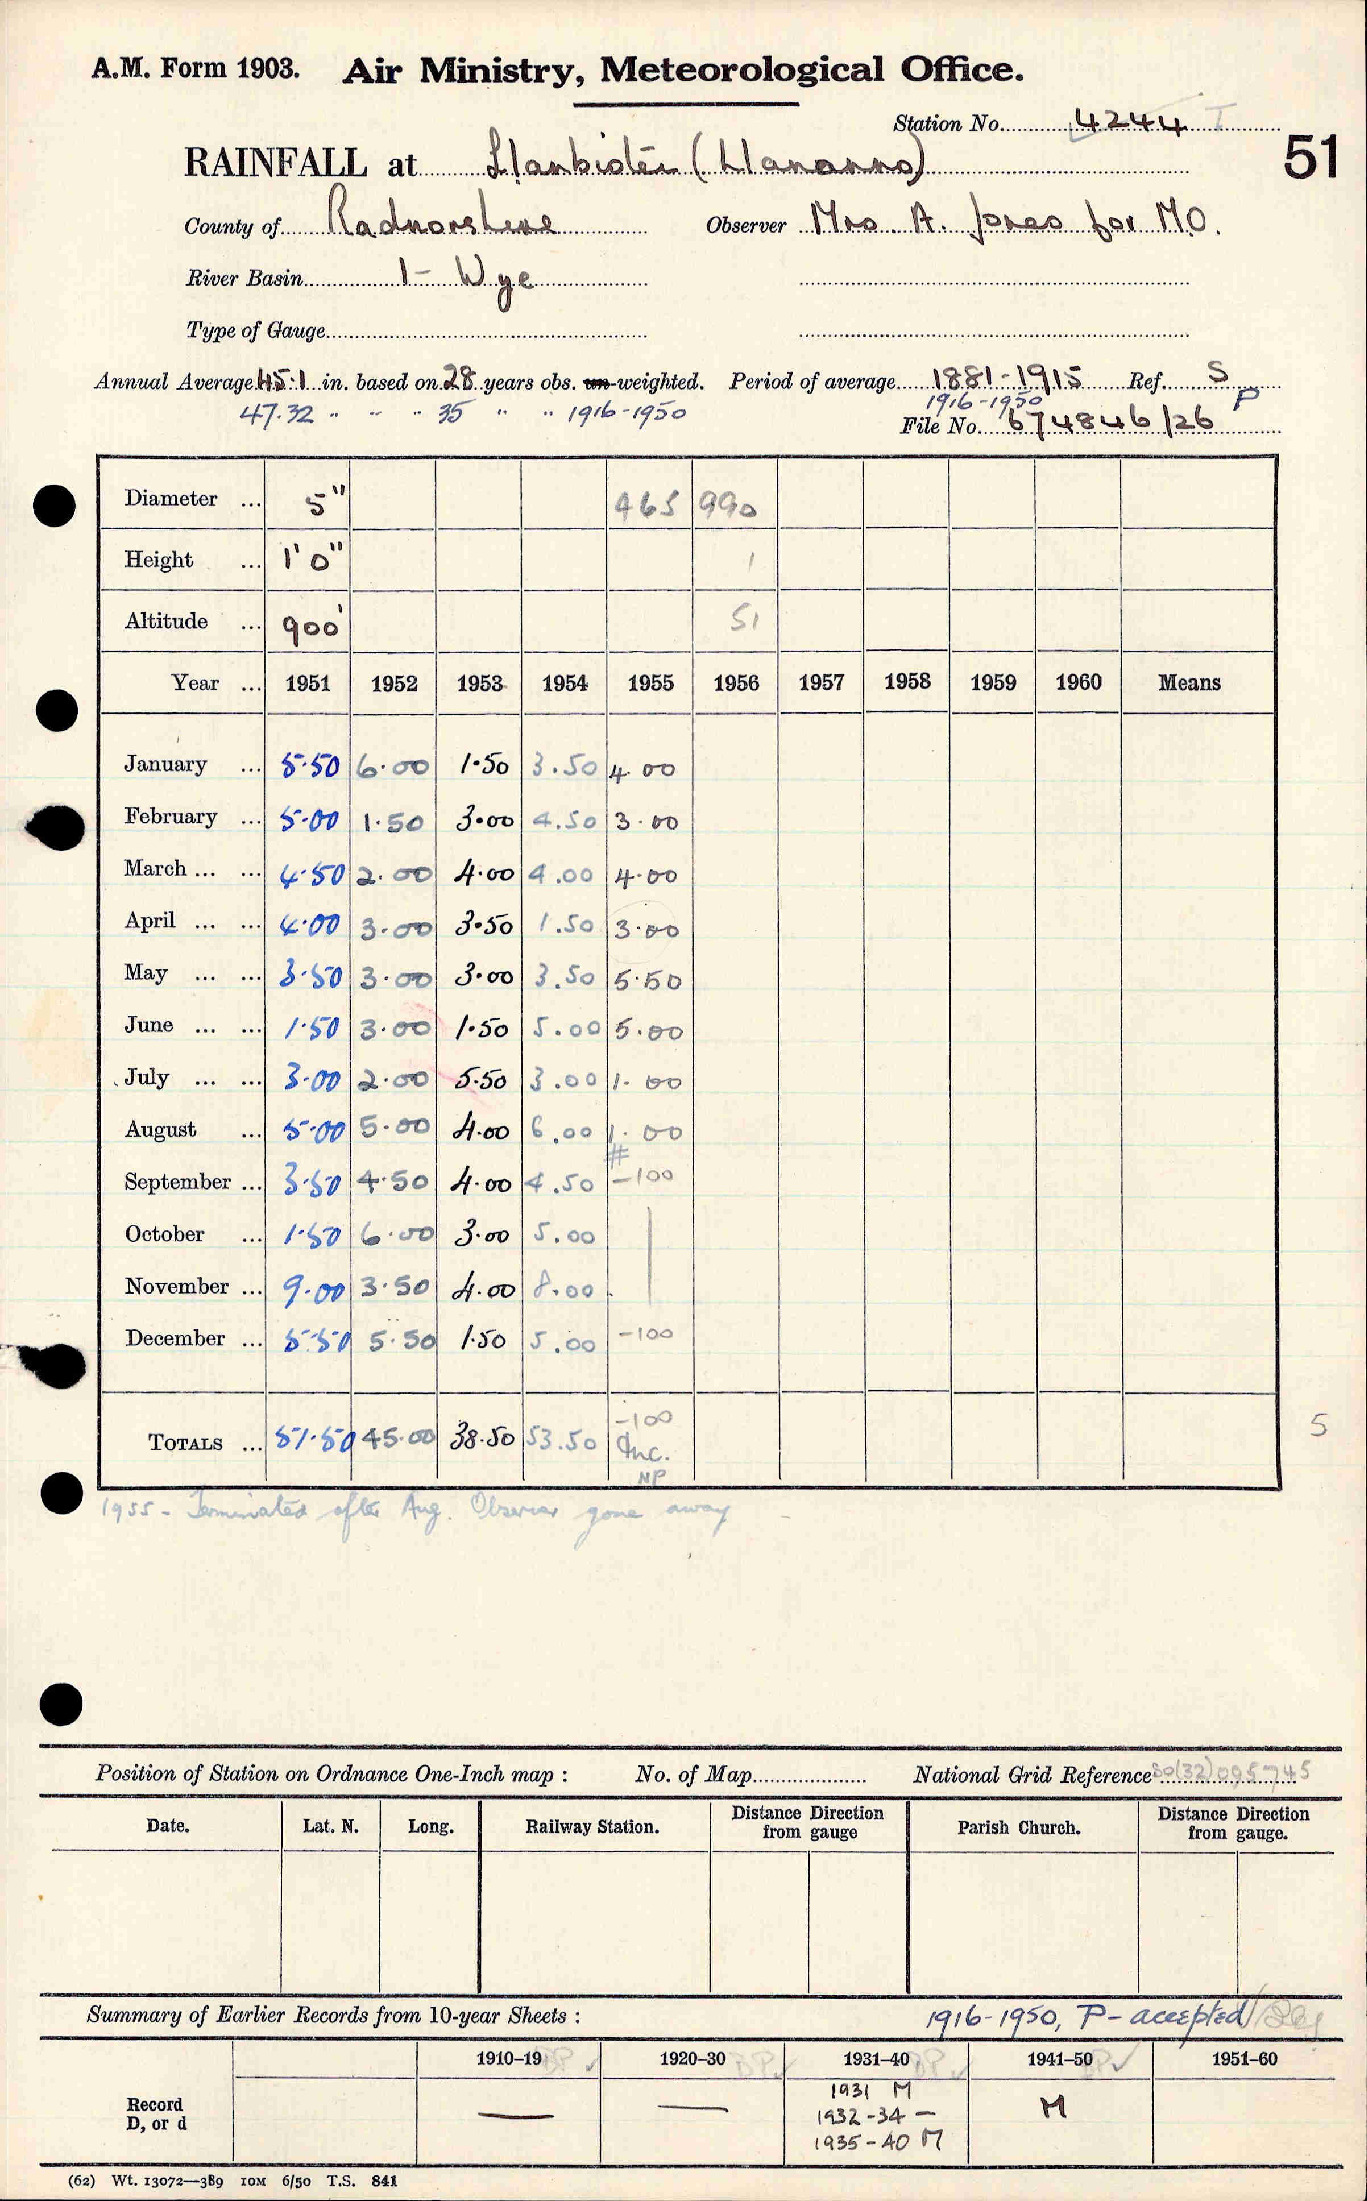 A.M. Form 1903. Air Ministry, Meteorological Office.
Station No. 4244 T
51
RAINFALL at Llanbister (Llananno)
County of Radnorshire Observer Mrs A. Jones for M.O.
River Basin 1- Wye
Type of Gauge
Annual Average 45.1 in. based on 28 years obs. un-weighted. Period of average 1881-1915 Ref. S
47.32 " " " 35 " " 1916-1950 1916-1950 P
File No. 674846/26
Diameter ... 5" 465 990
Height ... 1' 0" 1
Altitude ... 900' 51
Year ... 1951 1952 1953 1954 1955 1956 1957 1958 1959 1960 Means
January ... 5.50 6.00 1.50 3.50 4.00
February ... 5.00 1.50 3.00 4.50 3.00
March ... ... 4.50 2.00 4.00 4.00 4.00
April ... ... 4.00 3.00 3.50 1.50 3.00
May ... ... 3.50 3.00 3.00 3.50 5.50
June ... ... 1.50 3.00 1.50 5.00 5.00
July ... ... 3.00 2.00 5.50 3.00 1.00
August ... 5.00 5.00 4.00 6.00 1.00
#
September ... 3.50 4.50 4.00 4.50 -100
October ... 1.50 6.00 3.00 5.00
November ... 9.00 3.50 4.00 8.00
December ... 5.50 5.50 1.50 5.00 -100
TOTALS ... 51.50 45.00 38.50 53.50 -100
Inc.
NP
5
1955 - Terminated after Aug. Observer gone away
Position of Station on Ordnance One-Inch map : No. of Map National Grid Reference SO(32)095745
Date. Lat. N. Long. Railway Station. Distance Direction from gauge Parish Church. Distance Direction from gauge.
Summary of Earlier Records from 10-year Sheets : 1916-1950, P- accepted
1910–19 BP ✓ 1920–30 BP ✓ 1931–40 BP ✓ 1941–50 BP ✓ 1951–60
Record D, or d — — 1931 M M
1932-34 —
1935-40 M
(62) Wt. 13072—389 10M 6/50 T.S. 841